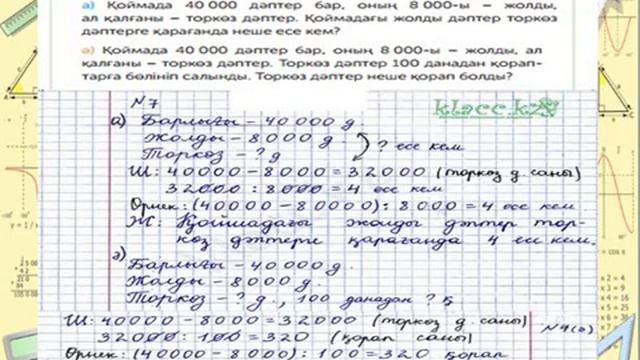 а) Қоймада 40 000 дәптер бар, оның 8 000-ы – жолды,
ал қалғаны – торкөз дәптер. Қоймадағы жолды дәптер торкөз
дәптерге қарағанда неше есе кем?
ә) Қоймада 40 000 дәптер бар, оның 8 000-ы – жолды, ал
қалғаны – торкөз дәптер. Торкөз дәптер 100 данадан қорап-
тарға бөлініп салынды. Торкөз дәптер неше қорап болды?
№7
klacc.kz
а) Барлығы – 40 000 д.
Жолды – 8 000 д.
? есе кем
Торкөз – ? д
Ш: 40000 – 8000 = 32000 (торкөз д. саны)
32000 : 8000 = 4 есе кем
Өрнек: (40000 – 80000) : 8000 = 4 есе кем
Ж: Қоймадағы жолды дәптер тор-
көз дәптерге қарағанда 4 есе кем.
ә)
Барлығы – 40000 д.
Жолды – 8000 д.
Торкөз – ? д., 100 данадан ? қ
Ш: 40000 – 8000 = 32000 (торкөз д. саны)
32000 : 100 = 320 (қорап саны)
Өрнек: (40000 – 8000) : 100 = 320 қорап
x 2 = 4
x 3 = 6
x 4 = 8
x 5 = 10
x 9 = 18